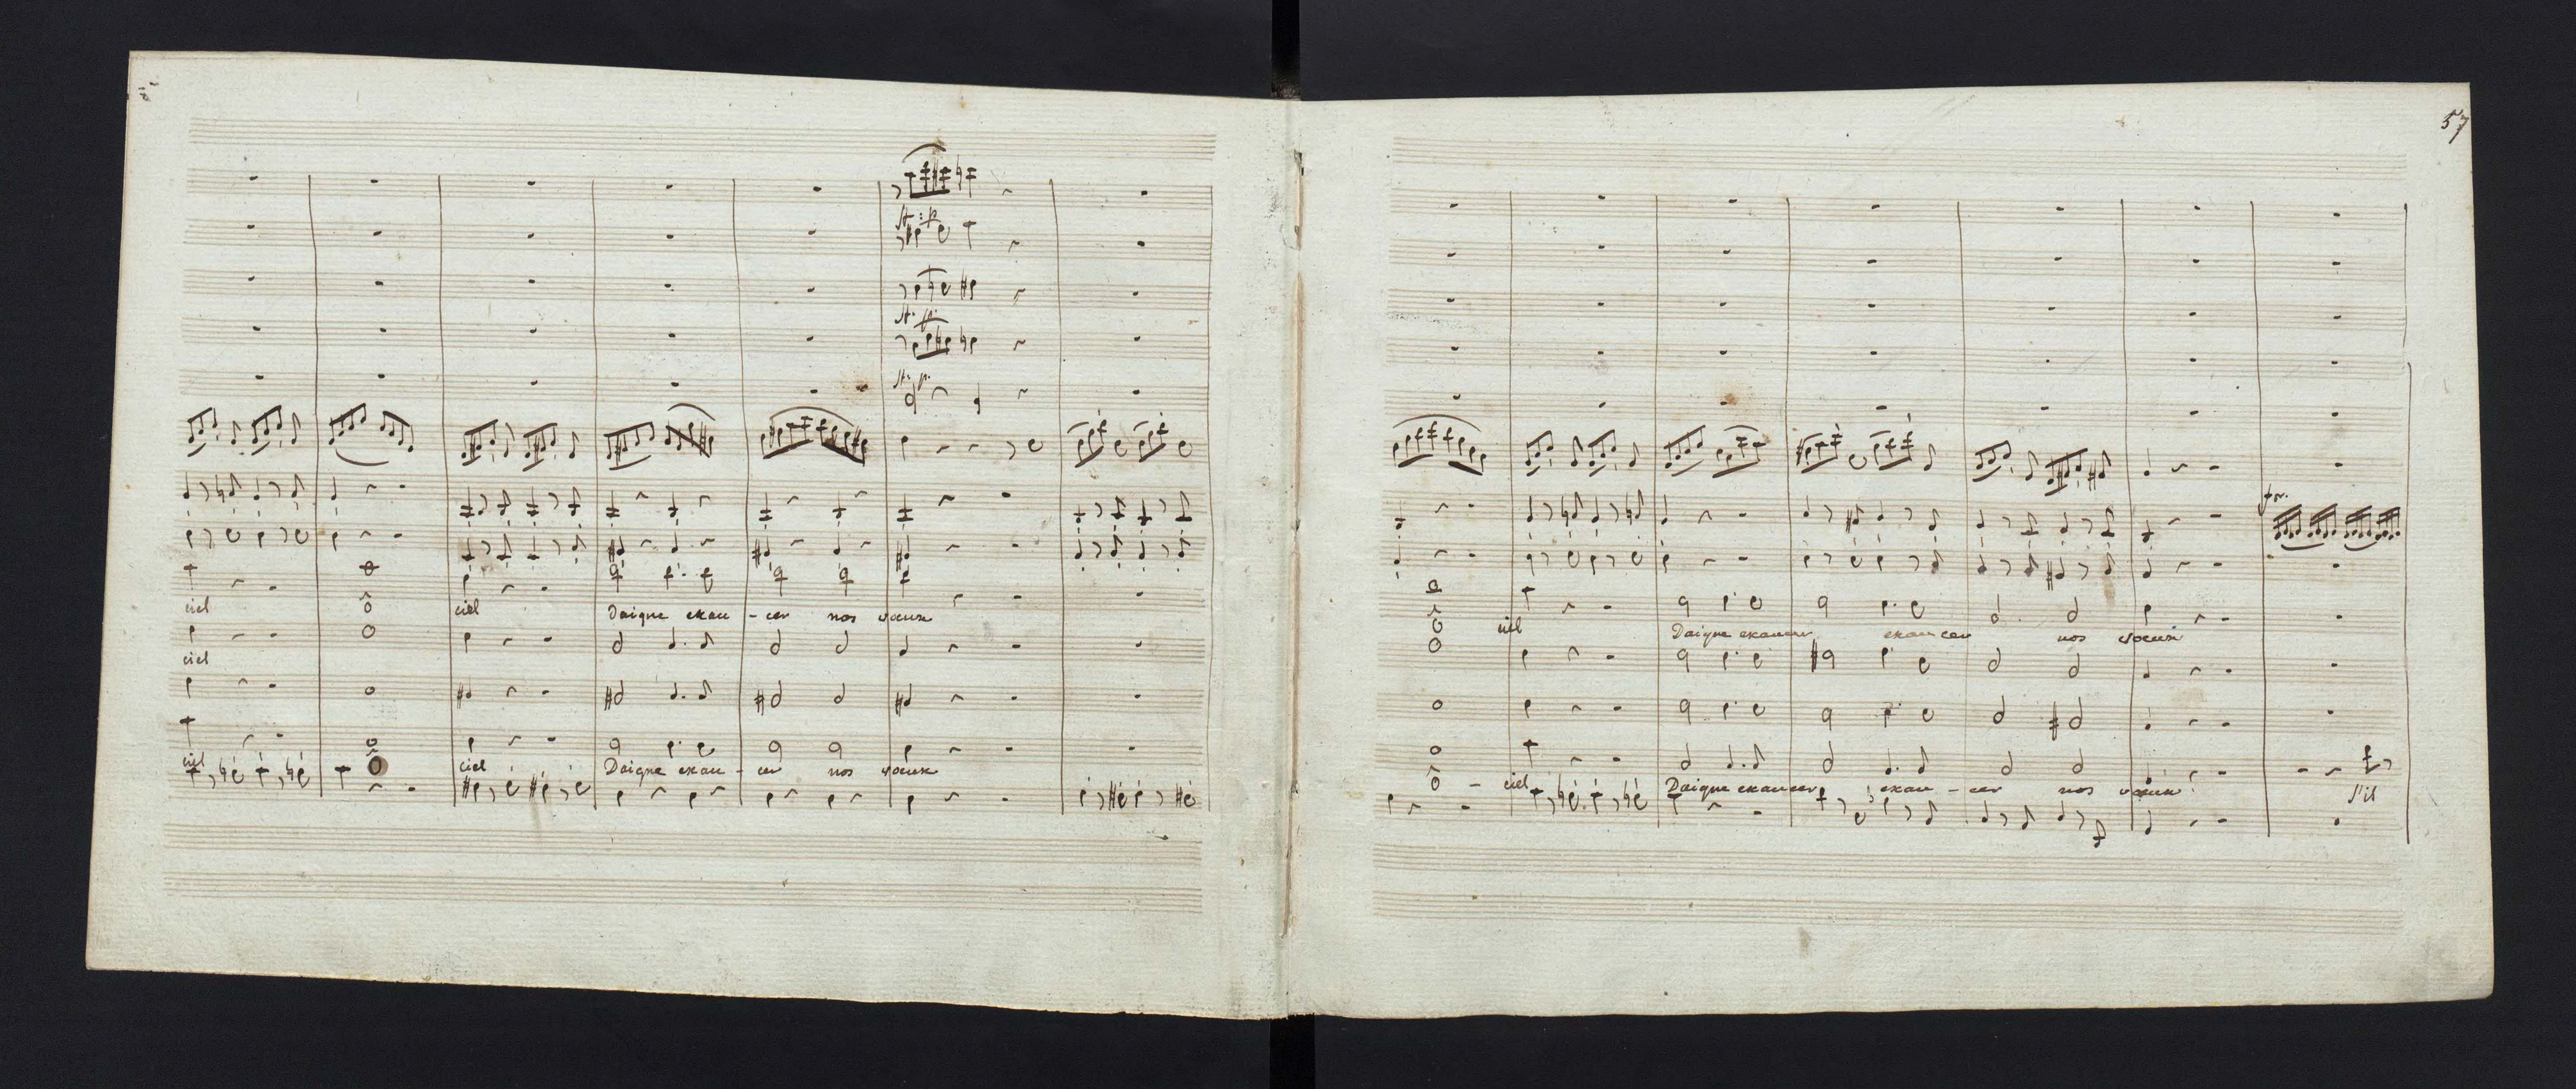 ciel ô ciel Daigne exau - cer nos voeux
ciel
ciel ô ciel Daigne exau - cer nos voeux
57
for.
ô ciel Daigne exaucer exaucer nos voeux
ô - ciel Daigne exaucer exau - cer nos voeux S'il